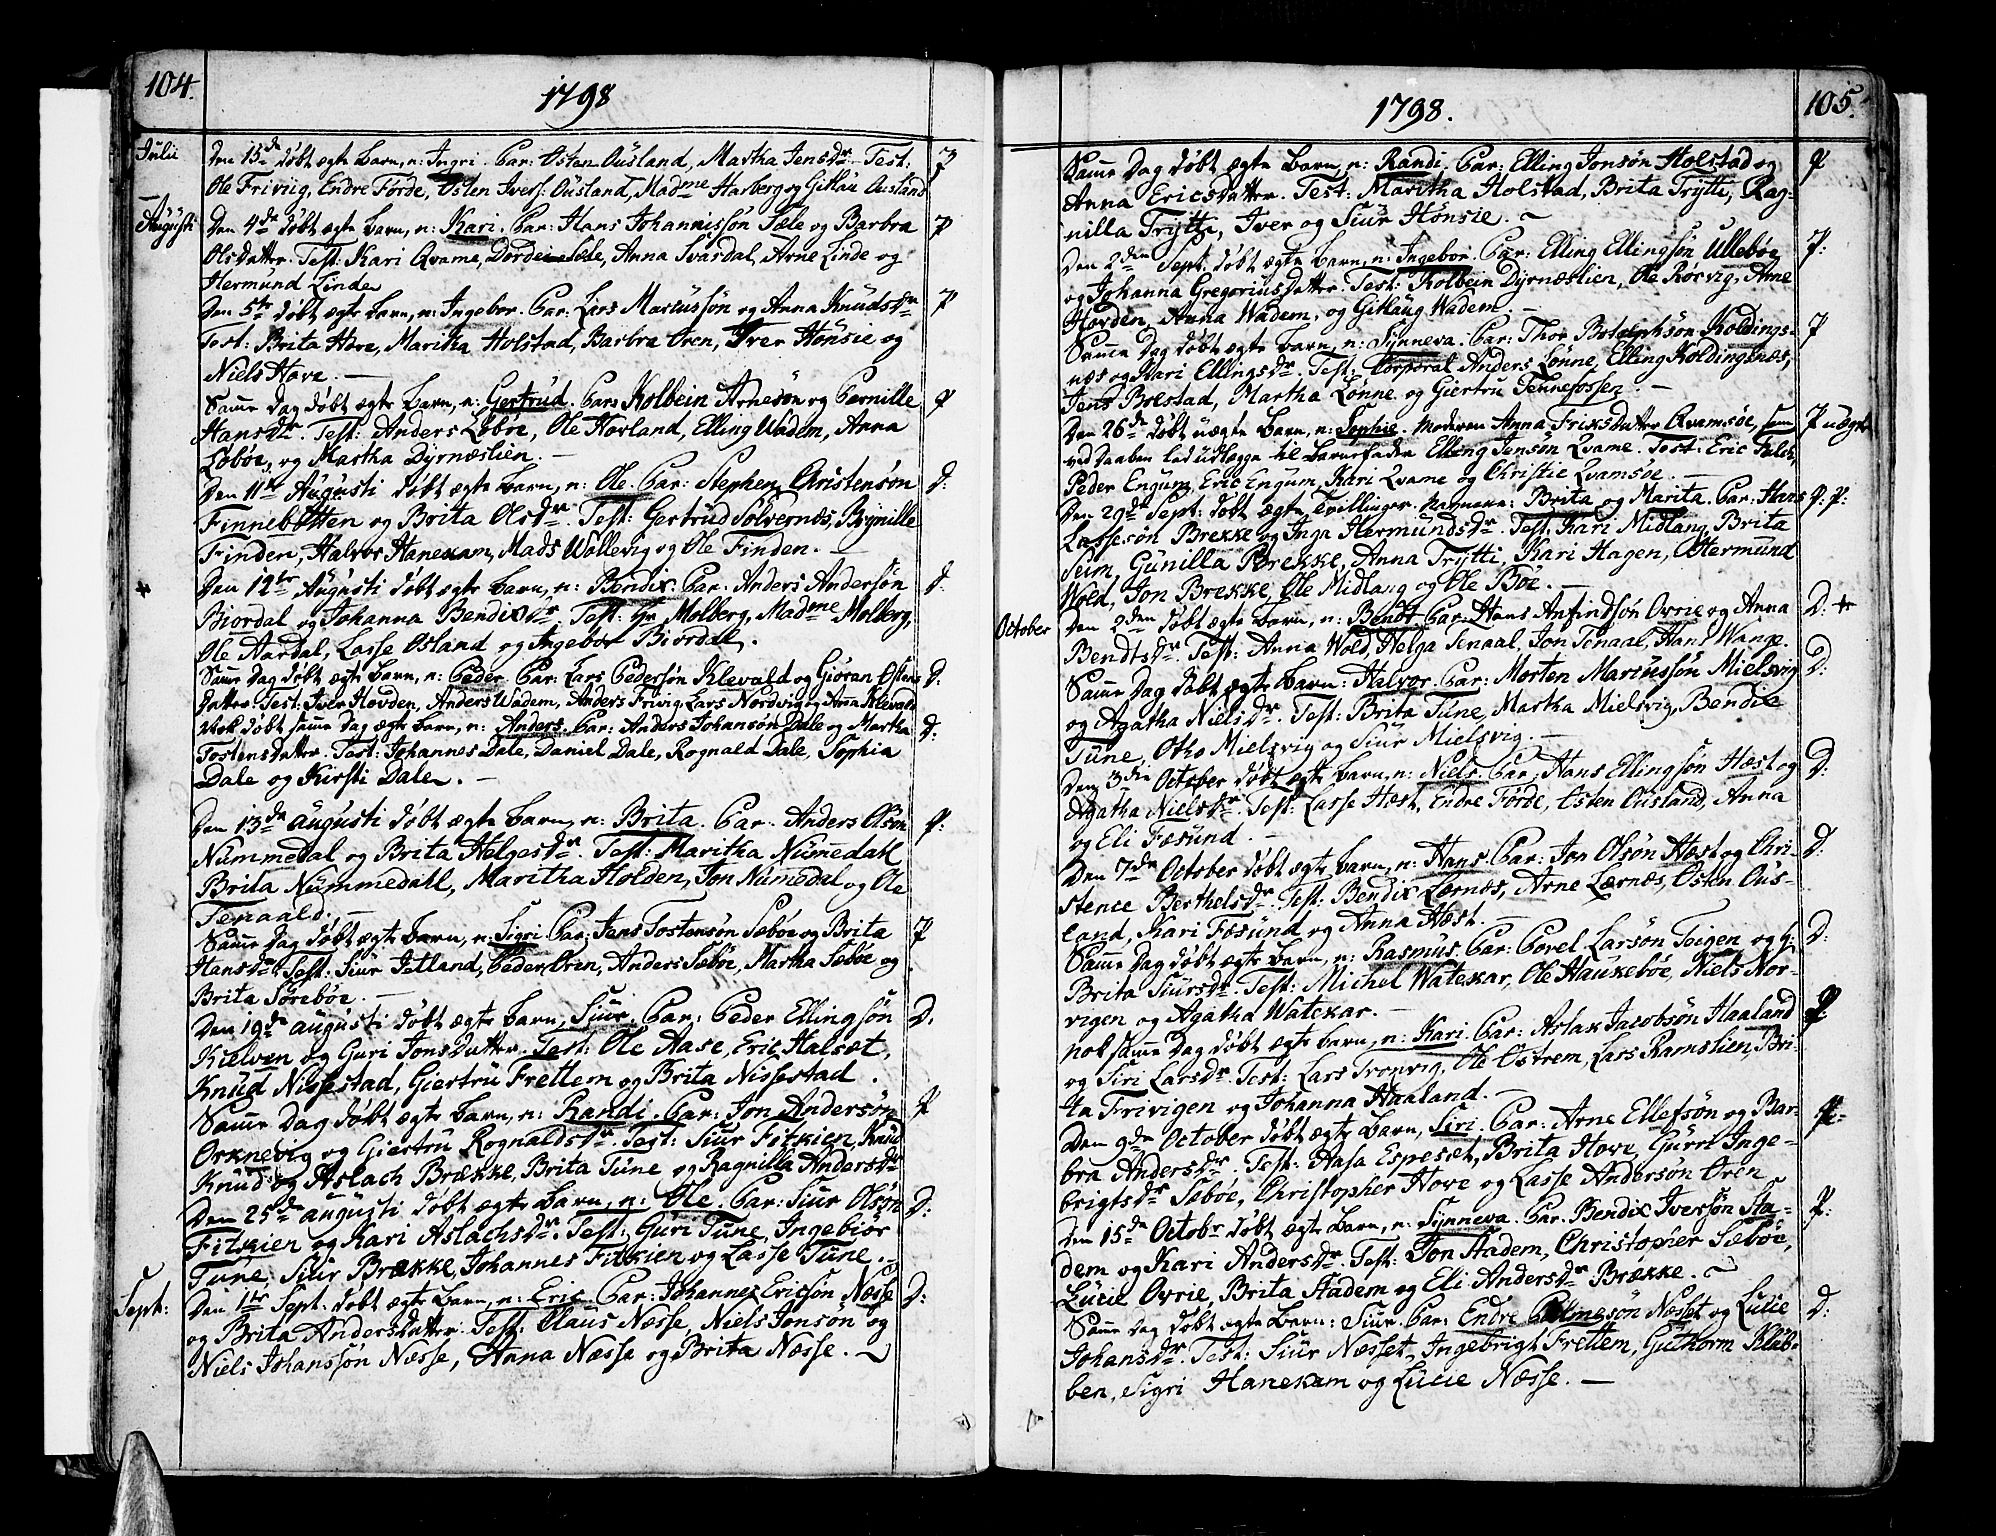 104.
1798
Julii
Den 15de døbt ægte Barn, n: Ingri. Par: Osten Ousland, Martha Jensdr. Test:
Ole Friviig, Endre Förde, Osten Ivers: Ousland, Madme Harberg og Gitlau Ousland
Augusti
Den 4de døbt ægte Barn, n: Kari. Par: Hans Johannissøn Sæle og Barbra
OlsDatter. Test: Kari Qvame, Dorde Sæle, Anna Svasdal, Arne Linde og
Hermund Linde
Den 5te døbt ægte Barn, n: Ingebor. Par: Lars Mariussøn og Anna Knudsdr
Test: Brita Hove, Maritha Holstad, Barbra Øren, Iver Hønsie og
Niels Hove. —
Samme Dag døbt ægte Barn, n: Gertrud. Pars Kolbein Arnesøn og Pernille
Hansdr. Test: Anders Løbøe, Ole Hovland, Elling Wadem, Anna
Løbøe, og Martha Dyrnæslien. —
Den 11te Augusti døbt ægte Barn, n: Ole. Par: Stephen Christensøn
Finnebotten og Brita Olsdr. Test: Gertrud Solvernæs, Brynille
Finden, Halvor Hanekam, Mads Wollevig og Ole Finden. —
Den 12te Augusti døbt ægte Barn, n: Bendix. Par: Anders Andersøn
Biordal og Johanna Bendixdr. Test: Hr Molberg, Madme Molberg,
Ole Aardal, Lasse Osland og Ingebor Biordal.
Samme Dag døbt ægte Barn, n: Peder. Par: Lars Pedersøn Klevald og Giøran Ostens
Datter. Test: Iver Hovden, Anders Wadem, Anders Frivig, Lars Nordvig og Anna Klevald
Nok døbt samme Dag ægte Barn, n: Anders. Par: Anders Johansøn Dale og Martha
Tostensdatter. Test: Johannes Dale, Daniel Dale, Rognald Dale, Sophia
Dale og Kirsti Dale. —
Den 13de augusti døbt ægte Barn, n: Brita. Par. Anders Olsøn
Nummedal og Brita Helgesdr. Test: Maritha Numedahl
Brita Nummedall, Maritha Holden, Jon Numedal og Ole
Tenaald. —
Samme Dag døbt ægte Barn, n: Sigri. Par: Jens Tostensøn Sæbøe og Brita
Hansdr. Test: Siur Jetland, Peder Øren, Anders Sæbøe, Martha Sæbøe og
Brita Sørebøe. —
Den 19de augusti døbt ægte Barn, Siur. Par: Peder Ellingsøn
Kielven og Guri Jonsdatter. Test: Ole Aase, Eric Halsæt,
Knud Nissestad, Giertru Frettem og Brita Nissestad.
Samme Dag døbt ægte Barn, n: Randi. Par: Jon Andersøn
Orknevig og Giertru Rognaldsdr. Test: Siur Fitkien, Knud
Knud og Aslach Brække, Brita Tune og Ragnilla Andersdr
Den 25de augusti døbt ægte Barn, n: Ole. Par: Siur Olsøn
Fitkien og Kari Aslachsdr. Test: Guri Tune, Ingebior
Tune, Siur Brække, Johannes Fitkien og Lasse Tune.
Sept:
Den 1te Sept. døbt ægte Barn, n: Eric. Par: Johannes Ericsøn Næsse
og Brita Andersdatter. Test: Claus Næsse, Niels Jonsøn og
Niels Johanssøn Næsse, Anna Næsse og Brita Næsse. —
P
P
P
P
D:
D.
D:
D:
P:
P
D.
P
D:
D:
1798.
105.
Samme Dag døbt ægte Barn, n: Randi. Par: Elling Jonsøn Holstad og
Anna EricsDatter. Test: Maritha Holstad, Brita Trytti, Rag-
nilla Trytti, Iver og Siur Hønsie. —
Den 2den Sept. døbt ægte Barn, n: Ingebor. Par: Elling Ellingsøn Ullebøe
og Johanna GregoriusDatter. Test: Kolbein Dyrnæslien, Ole Rorvig, Arne
Hovden, Anna Wadem, og Gitlaug Wadem. —
Samme Dag døbt ægte Barn, n: Synneva. Par: Thor Botolphsøn Koldings-
næs og Kari Ellingsdr. Test: Corporal Anders Lønne, Elling Koldingsnæs,
Jens Brestad, Martha Lønne og Giertru Tennefossen. —
Den 26de døbt uægte Barn, n: Sophie. Moderen Anna Friksdatter Qvamsøe, som
ved Daaben lod udlægge til Barnefader Elling Jensøn Qvame. Test: Eric Falch,
Peder Engum, Eric Engum, Kari Qvame og Christie Qvamsøe. —
Den 29de Sept: døbt ægte Tvillinger, Navnene: Brita og Marita. Par: Hans
Lassesøn Brekke og Inga Hermundsdr. Test: Kari Midlang, Brita
Seim, Gunilla Brekke, Anna Trytti, Kari Hagen, Hermund
Wold, Jon Brekke, Ole Midlang og Ole Bøe. —
October
Den 2den døbt ægte Barn, n: Bendt. Par: Hans Anfindsøn Ovrie og Anna
Bendtsdr. Test: Anna Wold, Helga Tenaal, Jon Tenaal, Hans Wange.
Samme Dag døbt ægte Barn: Halvor. Par: Morten Mariussøn Mielsvig
og Agatha Nielsdr. Test: Brita Tune, Martha Mielsvig, Bendix
Tune, Otho Mielsvig og Siur Mielsvig. —
Den 3die October døbt ægte Barn, n: Niels. Par: Hans Ellingsøn Hæst og
Agatha Nielsdr. Test: Lasse Hæst, Endre Förde, Osten Ousland, Anna
og Eli Fæsund. —
Den 7de October døbt ægte Barn, n: Hans. Par: Jon Olsøn Hæst og Chri-
stence Berthelsdr. Test: Bendix Lærnæs, Arne Lærnæs, Osten Ous-
land, Kari Fæsund og Anna Hæst. —
Samme Dag døbt ægte Barn, n: Rasmus. Par: Povel Larsøn Teigen og
Brita Siursdr. Test: Michel Watekar, Ole Haukebøe, Niels Nor-
vigen og Agatha Watekar. —
Nok samme Dag døbt ægte Barn, n: Kari. Par: Aslak Jacobsøn Haaland
og Siri Larsdr. Test: Lars Tronvig, Ole Ostrem, Lars Ramslien, Bri-
ta Frivigen og Johanna Haaland. —
Den 9de October døbt ægte Barn, Siri. Par: Arne Ellefsøn og Bar-
bra Andersdr. Test: Aasa Espesæt, Brita Hove, Gurri Inge-
brigtsdr Sæbøe, Christopher Hove og Lasse Anderson Øren
Den 15de Octobr døbt ægte Barn, n: Synneva. Par. Bendix Iversøn Sta-
dem og Kari Andersdr. Test: Jon Stadem, Christopher Sæbøe,
Lucie Ovrie, Brita Stadem og Eli Andersdr Brække. —
Samme Dag døbt ægte Barn: Siur. Par: Endre Salmesøn Næsset og Lucie
Johansdr. Test: Siur Næsset, Ingebrigt Frettem, Guthorm Klub-
ben, Sigri Hanekam og Lucie Næsse. —
P
P:
P
P uægte
P. P:
D:
D:
D:
D.
D:
P.
P.
P:
D: